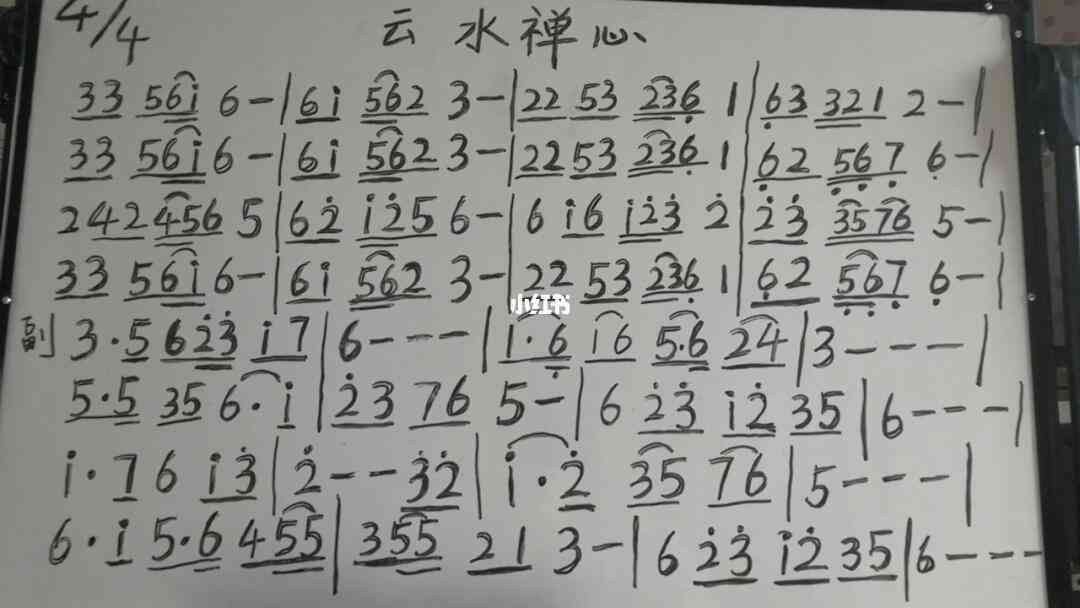 4/4 云水禅心
33 56i 6-|6i 562 3-|22 53 236 1|63 321 2-|
33 56i 6-|6i 562 3-|22 53 236 1|62 567 6-|
242 456 5|62 i25 6-|6 i6 i23 2|23 3576 5-|
33 56i 6-|6i 562 3-|22 53 236 1|62 567 6-|
副 3·5 623 i7|6---|1·6 i6 5·6 24|3---|
5·5 35 6·i|23 76 5-|6 23 i2 35|6---|
i·7 6 i3|2--32|i·2 35 76|5---|
6·i 5·6 455|355 21 3-|6 23 i2 35|6---
小红书